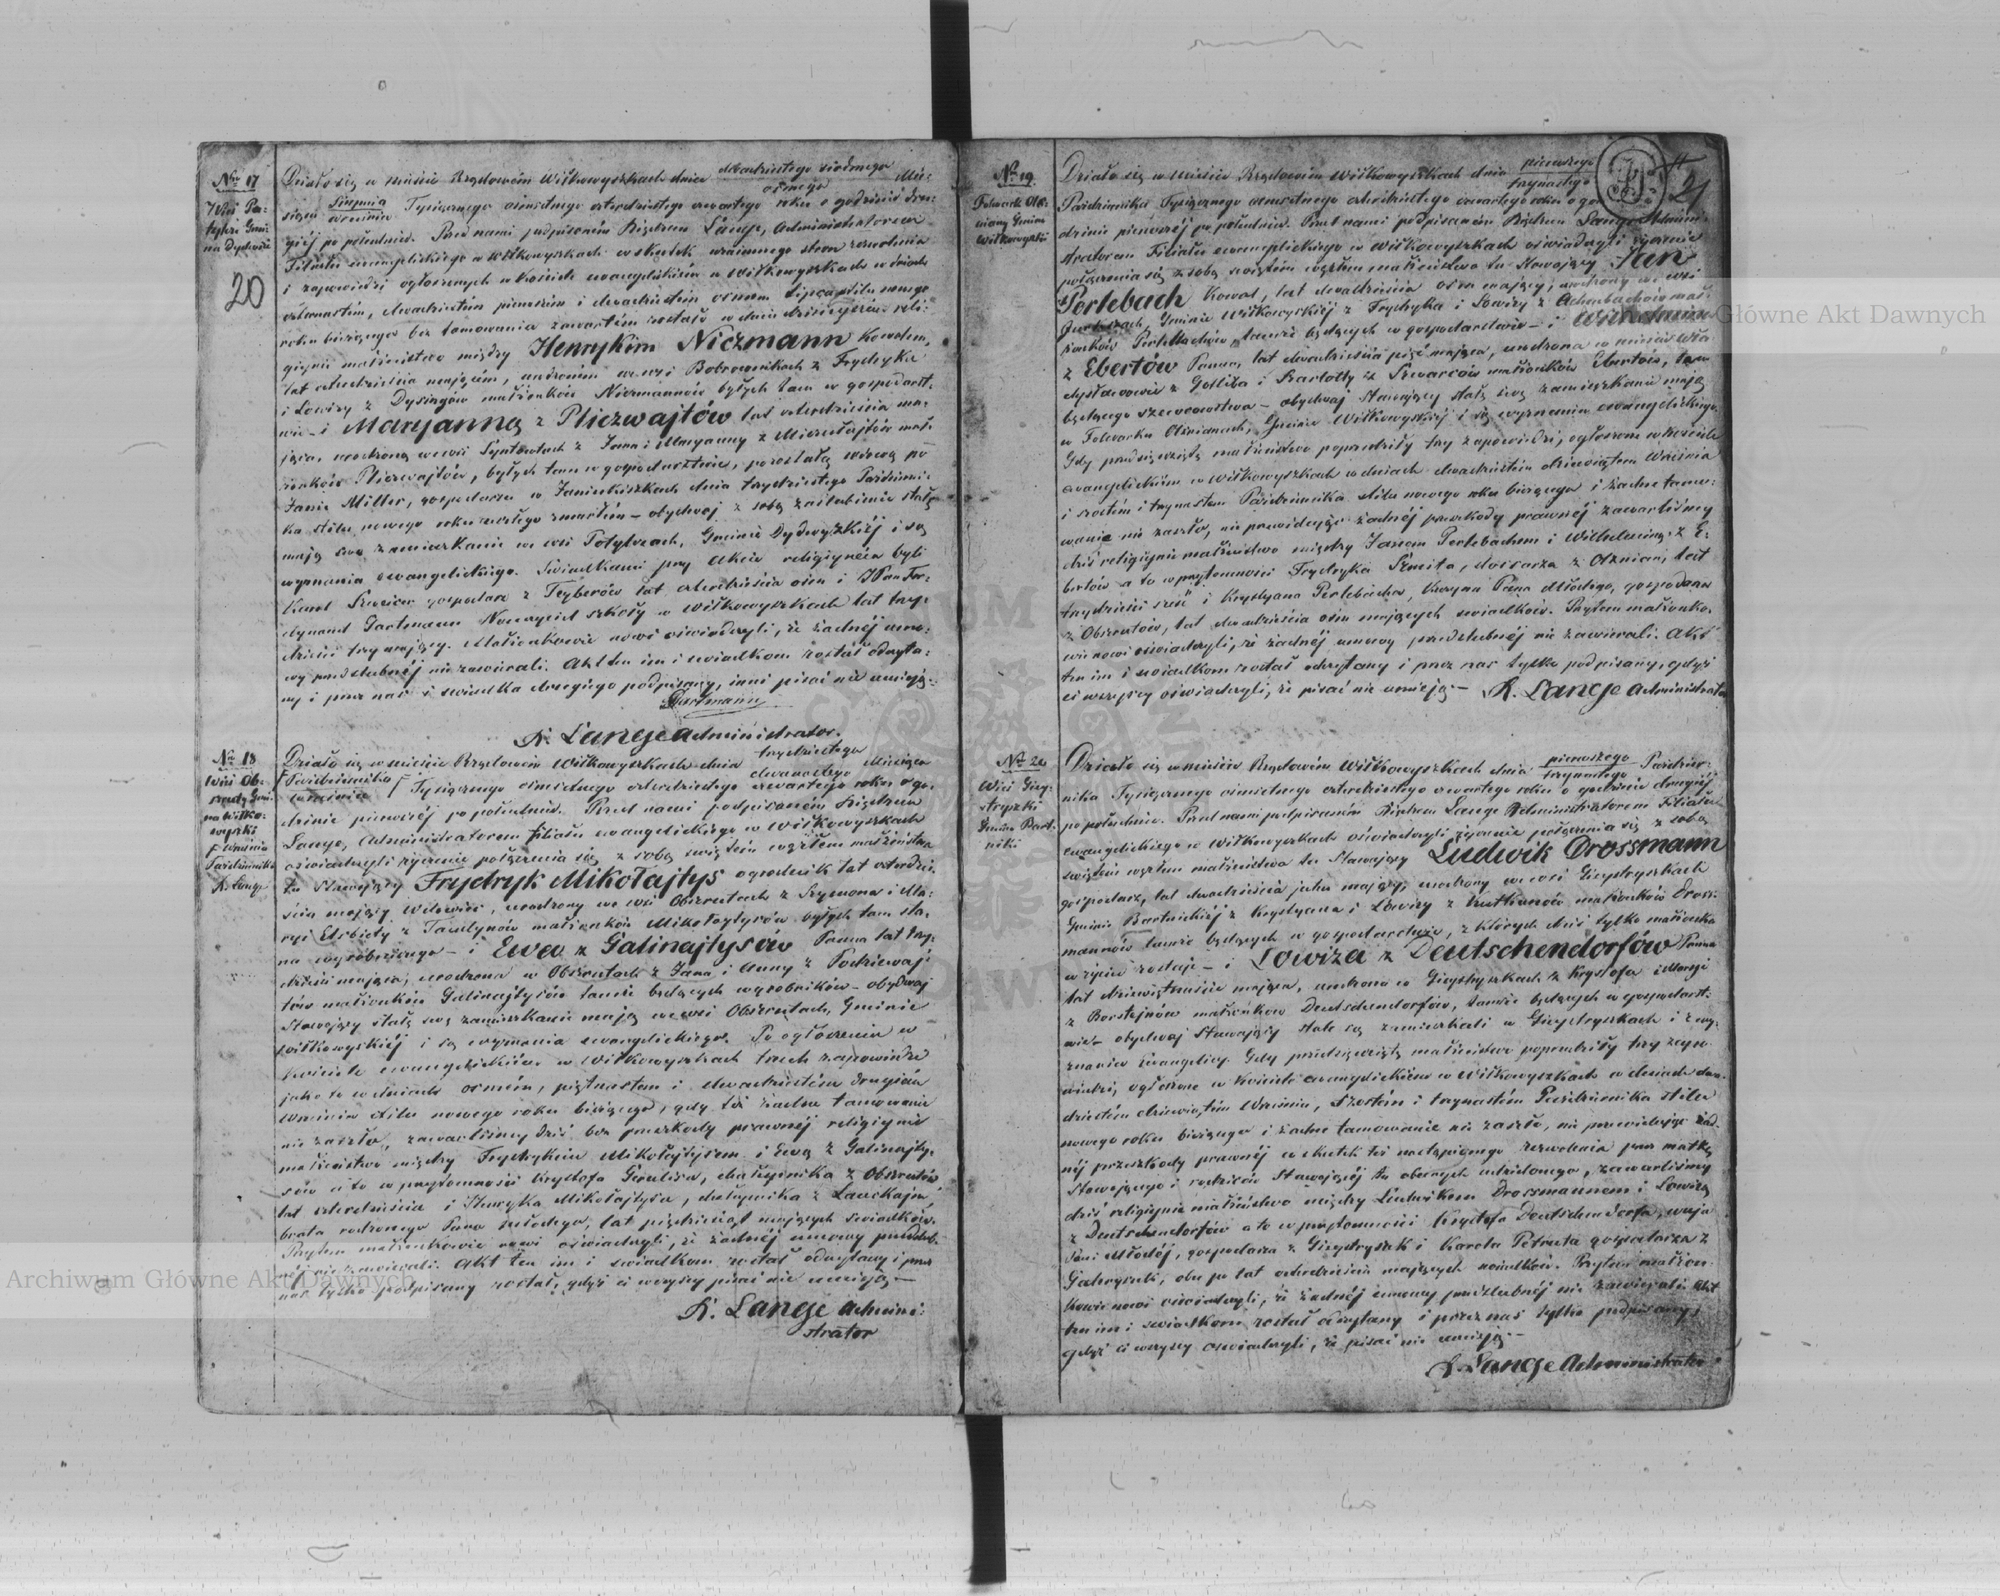 Nro 17
Wieś Po-
tylcze Gmi-
na Dydwiże
20
Działo się w mieście Rządowém Wiłkowyszkach dnia dwudziestego siódmego Mie-
ósmego
siąca Sierpnia Tysiącznego ośmsetnego czterdziestego czwartego roku o godzinie dru-
Września
giéj po południu. Przed nami podpisanem Księdzem Lange, Administratorem
Filiału ewangelickiego w Wiłkowyszkach w skutek wzaiemnego stron zezwolenia
i zapowiedzi ogłoszonych w kościele ewangelickim w Wiłkowyszkach w dniach
czternastém, dwudziestém pierwszém i dwudziestém ósmem Lipca stilu nowego
roku bieżącego bez tamowania zawartém zostało w dniu dzisiejszém reli-
gijnie małżeństwo między Henrykim Niczmann Kowalem,
lat czterdzieścia mającém, urodzoném we wsi Bobrownikach z Frydryka
i Lowizy z Dysingów małżonków Niczmannów byłych tam w gospodarst-
wie – i Maryanną z Pliczwajtów lat czterdzieścia ma-
jąca, urodzoną we wsi Syntowtach z Jana i Maryanny z Miczulajtów mał-
żonków Pliczwajtów, byłych tam w gospodarstwie, pozostałą wdową po
Janie Miller, gospodarzu w Janiukiszkach dnia trzydziestego Październi-
ka stilu nowego roku zeszłego zmarłém – obydwoj z sobą zaślubieni stałą
mają swe zamieszkanie we wsi Potylczach, Gminie Dydwyżskiéj i są
wyznania ewangelickiego. Świadkami przy akcie religijném byli
Karol gospodarz z Tyberów lat czterdzieścia ośm i JPan Fer-
dynand Gartmann Nauczyciel szkoły w Wiłkowyszkach lat trzy-
dzieści trzy mający. Małżonkowie nowi oświadczyli, że żadnéj umo-
wy przedślubnéj nie zawierali. Akt ten im i świadkom został odczyta-
ny i przez nas i świadka drugiego podpisany, inni pisać nie umieją.–
Gartmann
K. Lange Administrator.
Nro 18
Wieś Ob-
szruty Gmi-
na Wiłko-
wyszki
F. Września
Październiki
K. Lange
Działo się w mieście Rządowém Wiłkowyszkach dnia trzydziestego Miesiąca
dwunastego
Października Tysiącznego ośmsetnego czterdziestego czwartego roku o go-
Września
dzinie pierwszéj po południu. Przed nami podpisaném Księdzem
Lange, Administratorem Filiału ewangelickiego w Wiłkowyszkach
oświadczyli życzenie połączenia się z sobą świętém węzłem małżeństwa
tu stawający Frydryk Mikołajtys ogrodnik lat czterdzie-
ścia mający Wdowiec, urodzony we wsi Obszrutach z Szymona i Ma-
ryi Elżbiety z Taudynów małżonków Mikołajtysów byłych tam sta-
na wyrobniczego – i Ewa z Galinajtysów Panna lat trzy-
dzieści mająca, urodzona w Obszrutach z Jana i Anny z Podziewaj-
tów małżonków Galinajtysów tamże będących wyrobników – obydwoj
Stawający stałą swą zamieszkanie mają we wsi Obszrutach, Gminie
Wiłkowyskiéj i są wyznania ewangelickiego. Po ogłoszeniu w
kościele ewangelickim w Wiłkowyszkach trzech zapowiedzi
jako to w dniach ósmém, piętnastém i dwudziestém drugiém
Września stilu nowego roku bieżącego, gdy też żadne tamowanie
nie zaszło, zawarliśmy dziś bez przeszkody prawnéj religijnie
małżeństwo między Frydrykiem Mikołajtysem i Ewą z Galinajty-
sów a to w przytomności Krysztofa Girulisa, chałupnika z Obszrutów
lat czterdzieścia i Henryka Mikołajtysa, chałupnika z Lauckajm
brata rodzonego Pana młodego, lat pięćdziesiąt mających świadków.
Przytem małżonkowie nowi oświadczyli, że żadnéj umowy przedślub-
néj nie zawierali. Akt ten im i świadkom został odczytany i przez
nas tylko podpisany został, gdyż ci wszyscy pisać nie umieją –
K. Lange Admini-
strator
Nro 19.
Folwark Oż-
niany Gmina
Wiłkowyszki
21
Działo się w mieście Rządowém Wiłkowyszkach dnia pierwszego
trzynastego
Października Tysiącznego ośmsetnego czterdziestego czwartego roku o go-
dzinie pierwszéj po południu. Przed nami podpisaném Księdzem Lange Admini-
stratorem Filiału ewangelickiego w Wiłkowyszkach oświadczyli życzenie
połączenia się z sobą świętém węzłem małżeństwa tu stawający Jan
Perlebach Kowal, lat dwadzieścia ośm mający, urodzony we wsi
Gminie Wiłkowyskiéj z Frydryka i Lowizy z Achenbachów mał-
żonków Perlebachów, tamże będących w gospodarstwie – i Wilhelmina
z Ebertów Panna, lat dwadzieścia pięć mająca, urodzona w mieście Wła-
dysławowie z Gotliba i Szarlotty z Szwarców małżonków Ebertów, tam
będącego szewcowstwa – obydwaj stawający stałą swą zamieszkanie mają
w Folwarku Ożnianach, Gminie Wiłkowyskiéj i są wyznania ewangelickiego.
Gdy przedsięwziętą małżeństwo poprzedziły trzy zapowiedzi, ogłoszone w kościele
ewangelickim w Wiłkowyszkach w dniach dwudziestém dziewiątém Września
i szóstém i trzynastém Października stilu nowego roku bieżącego i żadne tamo-
wanie nie zaszło, nie przewidując żadnéj przeszkody prawnéj zawarliśmy
dziś religijnie małżeństwo między Janem Perlebachem i Wilhelminą z E-
bertów a to w przytomności Frydryka Szmita, dozorca z Ożnian, lat
trzydzieści sześć i Krystyana Perlebacha, kuzyna Pana młodego, gospodarza
z Obszrutów, lat dwadzieścia ośm mających świadków. Przytem małżonko-
wie nowi oświadczyli, że żadnéj umowy przedślubnéj nie zawierali. Akt
ten im i świadkom został odczytany i przez nas tylko podpisany, gdyż
ci wszyscy oświadczyli, że pisać nie umieją – K. Lange Administrator
Nro 20
Wieś Giej-
stryszki
Gmina Bart-
niki
Działo się w mieście Rządowém Wiłkowyszkach dnia pierwszego Paździer-
trzynastego
nika Tysiącznego ośmsetnego czterdziestego czwartego roku o godzinie drugiéj
po południu. Przed nami podpisaném Księdzem Lange Administratorem Filiału
ewangelickiego w Wiłkowyszkach oświadczyli życzenie połączenia się z sobą
świętém węzłem małżeństwa tu Stawający Ludwik Drossmann
gospodarz, lat dwadzieścia jeden mający, urodzony we wsi Giejstryszkach
Gminie Bartnickiéj z Krystyana i Lowizy z małżonków Dross-
mannów tamże będących w gospodarstwie, z których dziś tylko małżonka
w życiu zostaje – i Lowiza z Deutschendorfów Panna
lat dziewiętnaście mająca, urodzona w Giejstryszkach z Krysztofa i Maryi
z Borstejnów małżonków Deutschendorfów, tamże będących w gospodarst-
wie – obydwaj Stawający stale są zamieszkali w Giejstryszkach i z wy-
znania Ewangelicy. Gdy przedsięwziętą małżeństwo poprzedziły trzy zapo-
wiedzi, ogłoszone w kościele ewangelickim w Wiłkowyszkach w dniach dwu-
dziestém dziewiątém Września, szóstém i trzynastém Października stilu
nowego roku bieżącego i żadne tamowanie nie zaszło, nie przewidując żad-
néj przeszkody prawnéj w skutek też nastąpionego zezwolenia przez matkę
Stawającego i rodziców Stawającéj tu obecnych udzielonego, zawarliśmy
dziś religijnie małżeństwo między Ludwikiem Drossmannem i Lowizą
z Deutschendorfów a to w przytomności Krysztofa Deutschendorfa, wuja
Pani Młodéj, gospodarza z Giejstryszek i Karola Petruta gospodarza z
obu po lat czterdzieści mających świadków. Przytem małżon-
kowie nowi oświadczyli, że żadnéj umowy przedślubnéj nie zawierali. Akt
ten im i świadkom został odczytany i przez nas tylko podpisany,
gdyż ci wszyscy oświadczyli, że pisać nie umieją –
K. Lange Administrator
Archiwum Główne Akt Dawnych
Główne Akt Dawnych